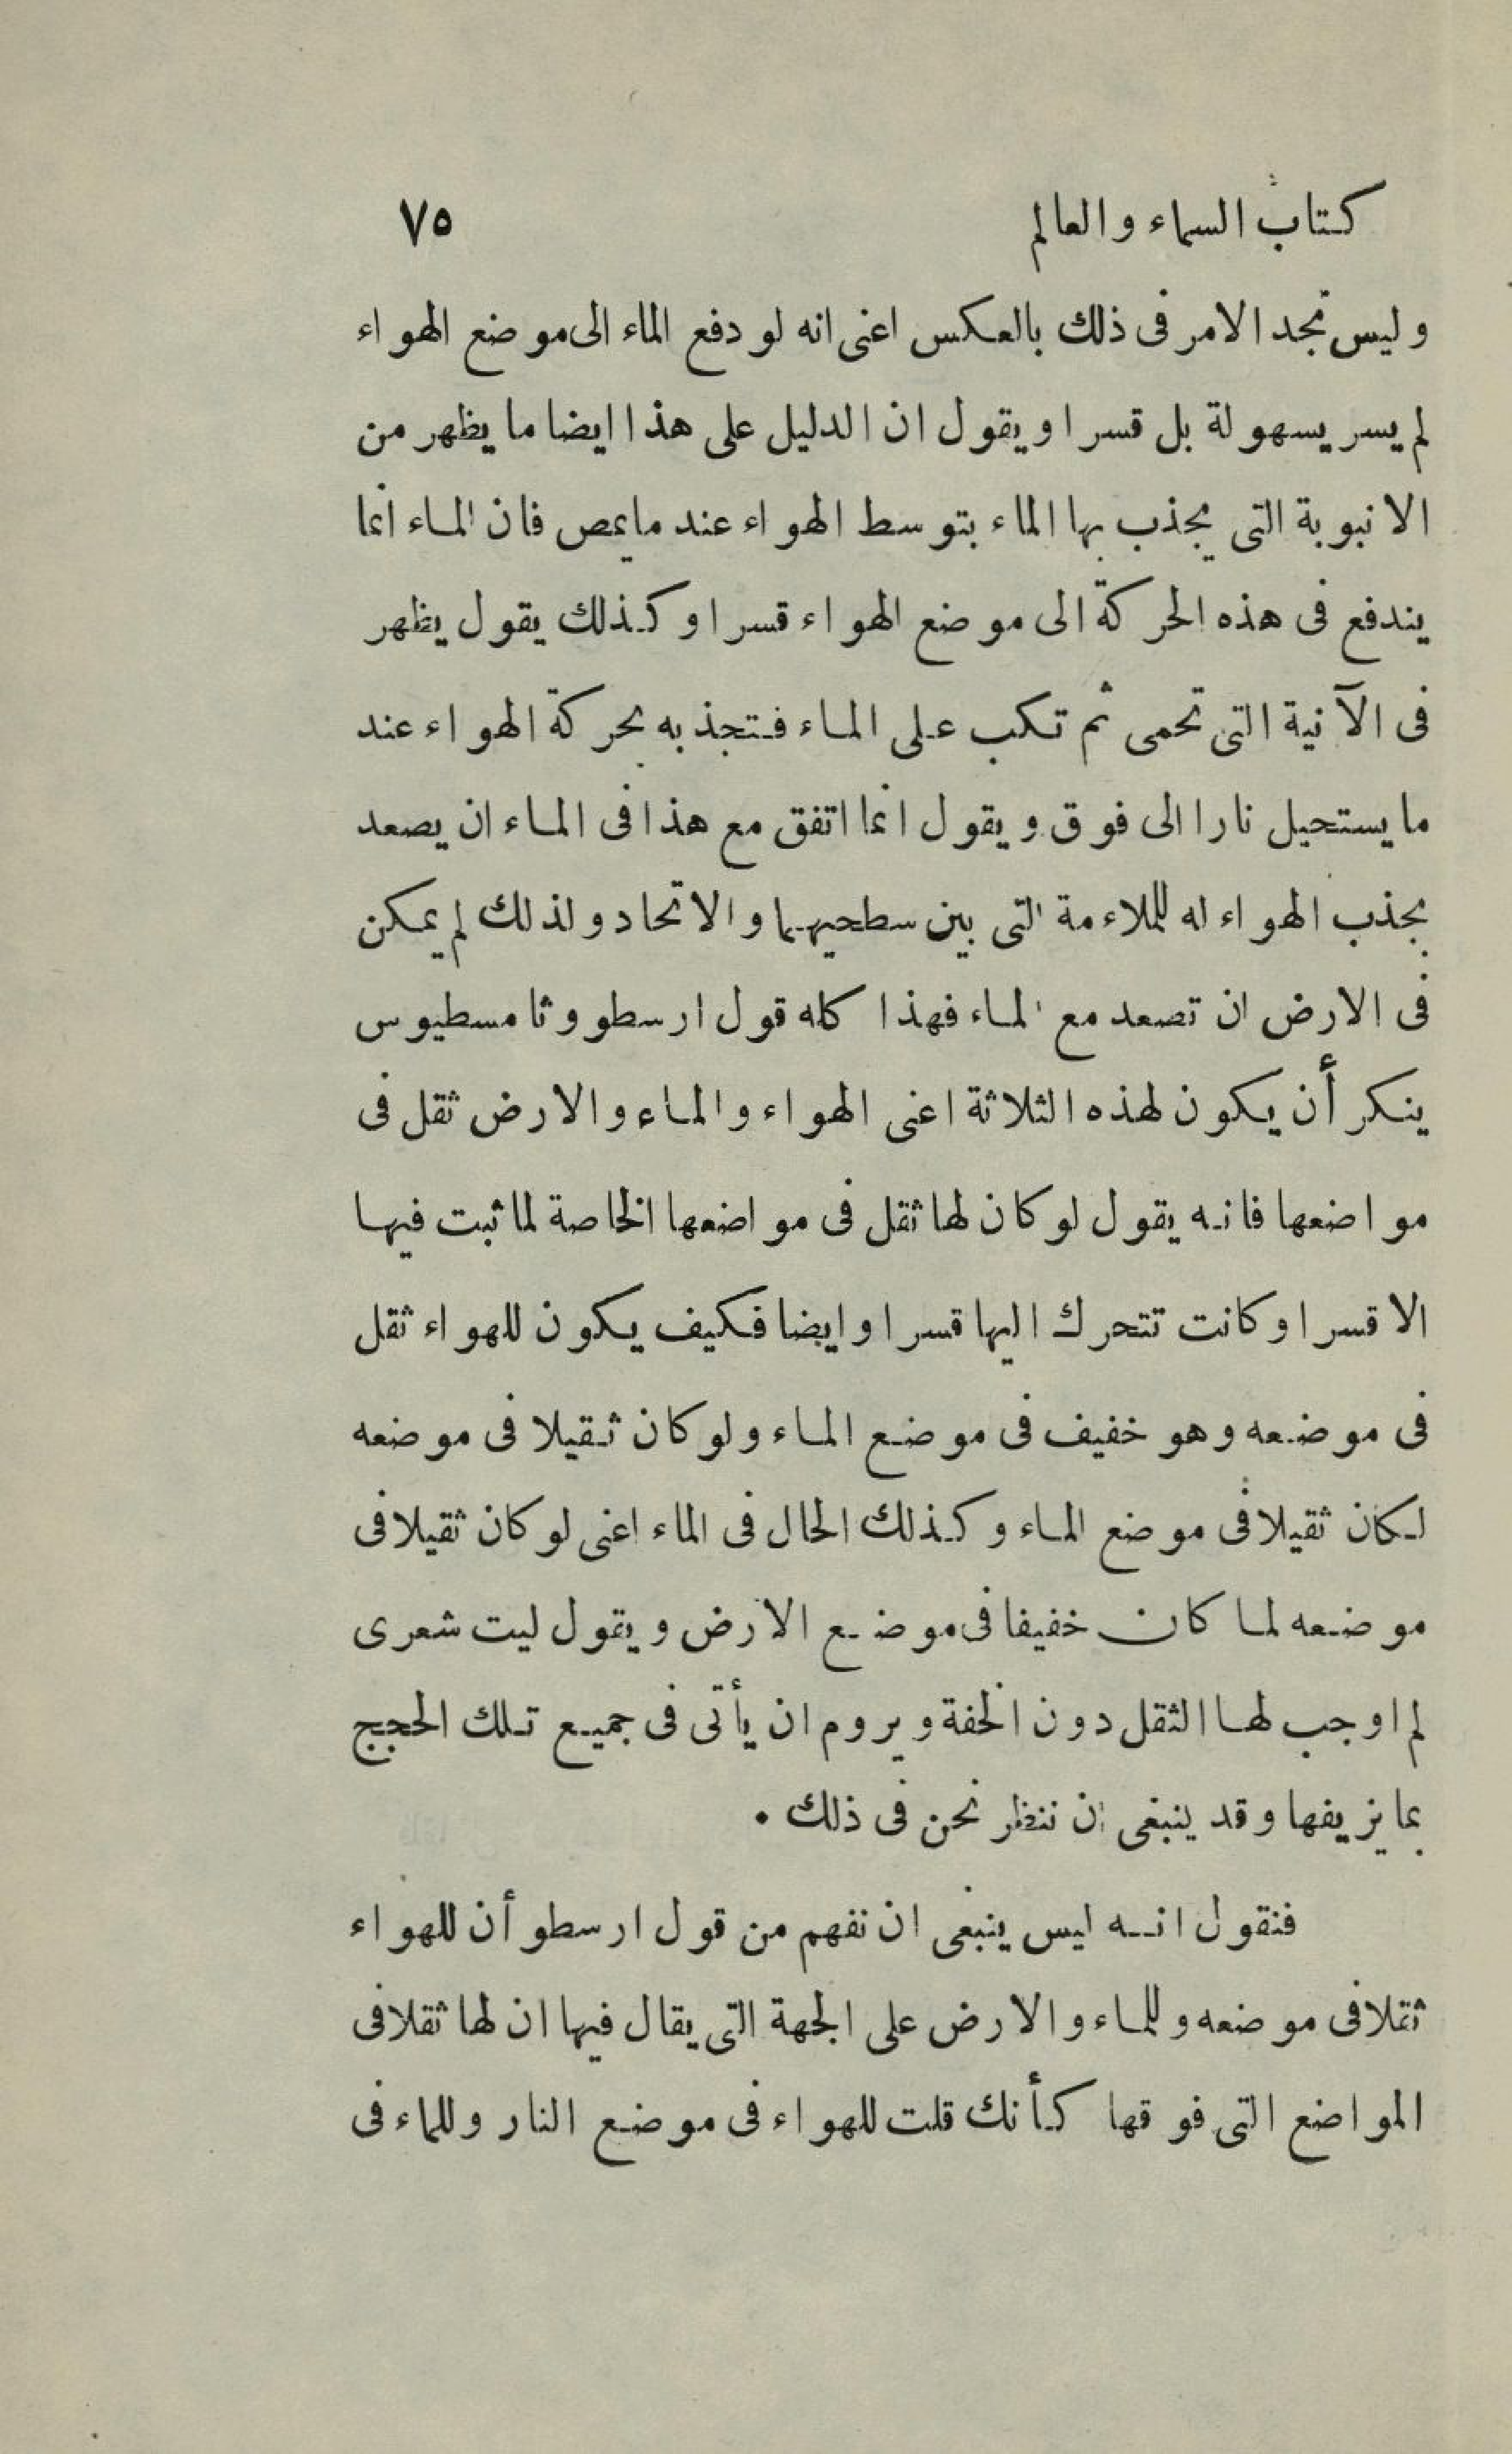 كتاب السماء والعالم ٧٥
وليس نجد الامر فى ذلك بالعكس اعنى انه لو دفع الماء الى موضع الهواء
لم يسر يسهولة بل قسرا ويقول ان الدليل على هذا ايضا ما يظهر من
الانبوبة التى يجذب بها الماء بتوسط الهواء عند ما يمص فان الماء انما
يندفع فى هذه الحركة الى موضع الهواء قسرا وكذلك يقول يظهر
فى الآنية التى تحمى ثم تكب على الماء فتجذبه بحركة الهواء عند
ما يستحيل نارا الى فوق ويقول انما اتفق مع هذا فى الماء ان يصعد
بجذب الهواء له للملاءمة التى بين سطحيهما والاتحاد ولذلك لم يمكن
فى الارض ان تصعد مع الماء فهذا كله قول ارسطو وثامسطيوس
ينكر أن يكون لهذه الثلاثة اعنى الهواء والماء والارض ثقل فى
مواضعها فانه يقول لو كان لها ثقل فى مواضعها الخاصة لما ثبت فيها
الا قسرا وكانت تتحرك اليها قسرا وايضا فكيف يكون للهواء ثقل
فى موضعه وهو خفيف فى موضع الماء ولو كان ثقيلا فى موضعه
لكان ثقيلا فى موضع الماء وكذلك الحال فى الماء اعنى لو كان ثقيلا فى
موضعه لما كان خفيفا فى موضع الارض ويقول ليت شعرى
لم اوجب لها الثقل دون الخفة ويروم ان يأتى فى جميع تلك الحجج
بما يزيفها وقد ينبغى ان ننظر نحن فى ذلك .
فنقول انه ليس ينبغى ان نفهم من قول ارسطو أن للهواء
ثقلا فى موضعه وللماء والارض على الجهة التى يقال فيها ان لها ثقلا فى
المواضع التى فوقها كأنك قلت للهواء فى موضع النار وللماء فى